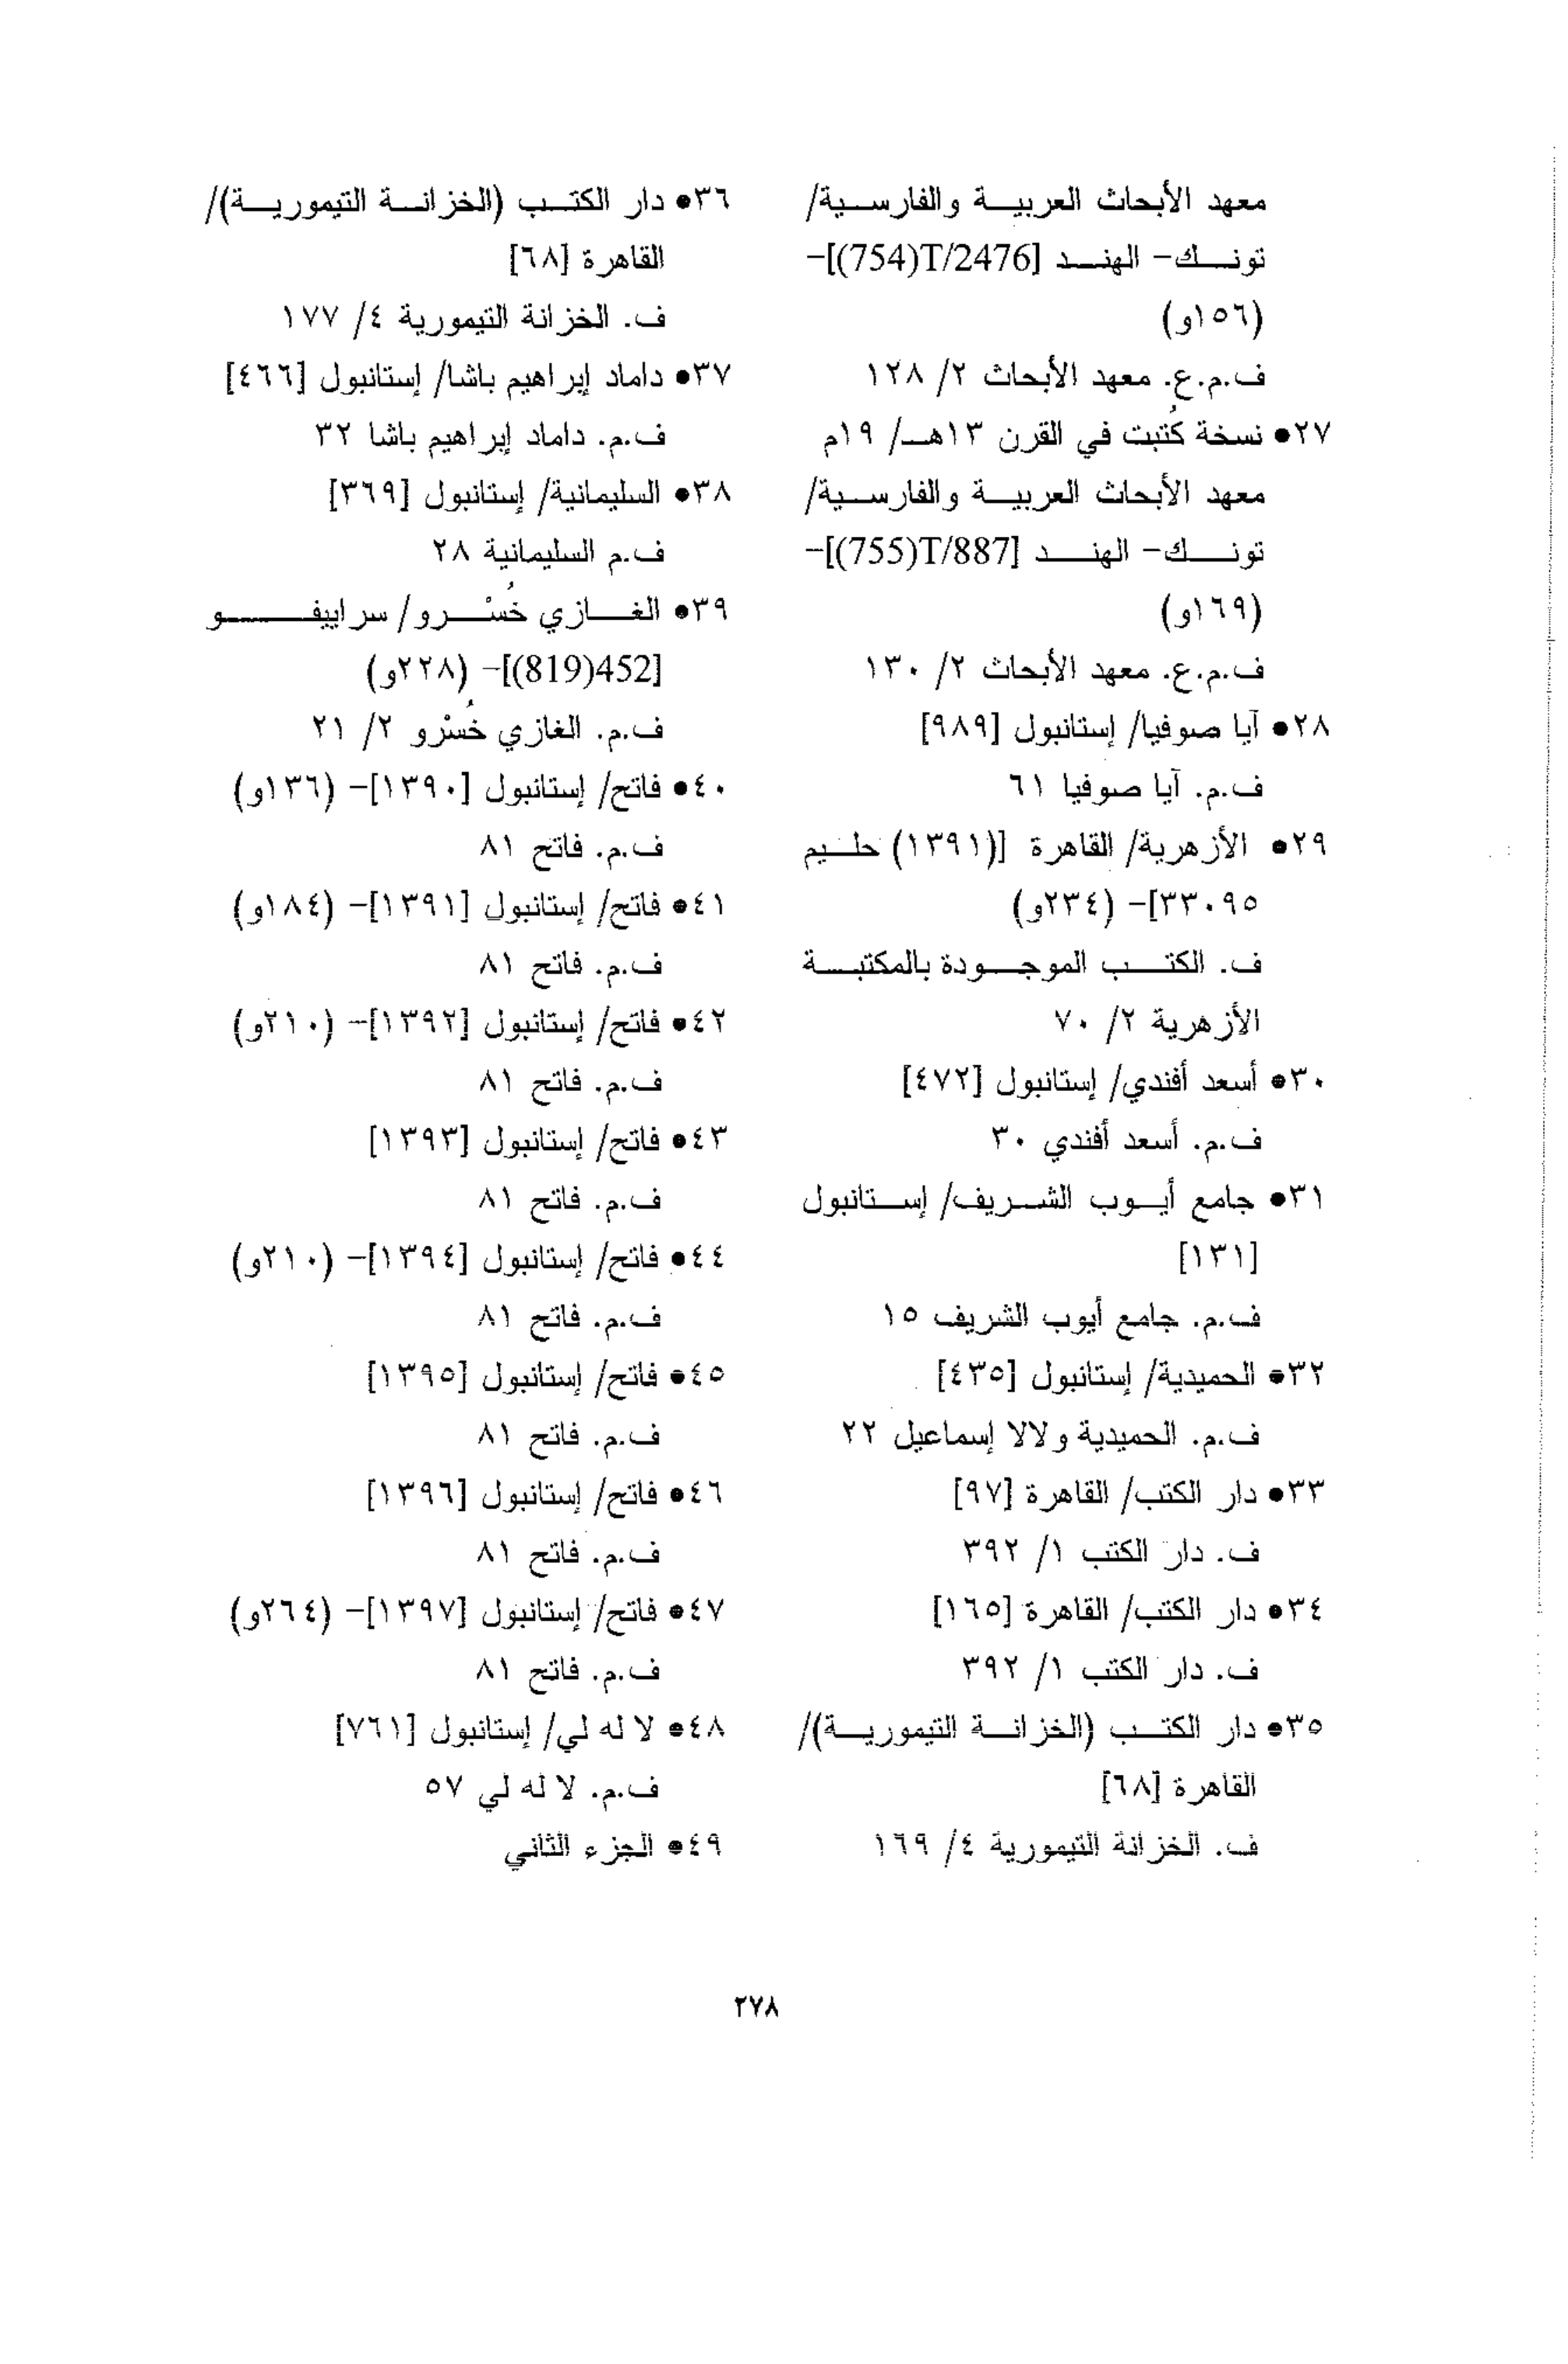 معهد الأبحاث العربية والفارسية/
تونك- الهند [2476/T(754)]-
(١٥٦و)
ف.م.ع. معهد الأبحاث ٢/ ١٢٨
٢٧• نسخة كُتبت في القرن ١٣هـ/ ١٩م
معهد الأبحاث العربية والفارسية/
تونك- الهند [887/T(755)]-
(١٦٩و)
ف.م.ع. معهد الأبحاث ٢/ ١٣٠
٢٨• آيا صوفيا/ إستانبول [٩٨٩]
ف.م. آيا صوفيا ٦١
٢٩• الأزهرية/ القاهرة [(١٣٩١) حليم
٣٣٠٩٥]- (٢٣٤و)
ف. الكتب الموجودة بالمكتبة
الأزهرية ٢/ ٧٠
٣٠• أسعد أفندي/ إستانبول [٤٧٢]
ف.م. أسعد أفندي ٣٠
٣١• جامع أيوب الشريف/ إستانبول
[١٣١]
ف.م. جامع أيوب الشريف ١٥
٣٢• الحميدية/ إستانبول [٤٣٥]
ف.م. الحميدية ولالا إسماعيل ٢٢
٣٣• دار الكتب/ القاهرة [٩٧]
ف. دار الكتب ١/ ٣٩٢
٣٤• دار الكتب/ القاهرة [١٦٥]
ف. دار الكتب ١/ ٣٩٢
٣٥• دار الكتب (الخزانة التيمورية)/
القاهرة [٦٨]
ف. الخزانة التيمورية ٤/ ١٦٩
٣٦• دار الكتب (الخزانة التيمورية)/
القاهرة [٦٨]
ف. الخزانة التيمورية ٤/ ١٧٧
٣٧• داماد إبراهيم باشا/ إستانبول [٤٦٦]
ف.م. داماد إبراهيم باشا ٣٢
٣٨• السليمانية/ إستانبول [٣٦٩]
ف.م السليمانية ٢٨
٣٩• الغازي خُسْرو/ سراييفو
[452(819)]- (٢٢٨و)
ف.م. الغازي خُسْرو ٢/ ٢١
٤٠• فاتح/ إستانبول [١٣٩٠]- (١٣٦و)
ف.م. فاتح ٨١
٤١• فاتح/ إستانبول [١٣٩١]- (١٨٤و)
ف.م. فاتح ٨١
٤٢• فاتح/ إستانبول [١٣٩٢]- (٢١٠و)
ف.م. فاتح ٨١
٤٣• فاتح/ إستانبول [١٣٩٣]
ف.م. فاتح ٨١
٤٤• فاتح/ إستانبول [١٣٩٤]- (٢١٠و)
ف.م. فاتح ٨١
٤٥• فاتح/ إستانبول [١٣٩٥]
ف.م. فاتح ٨١
٤٦• فاتح/ إستانبول [١٣٩٦]
ف.م. فاتح ٨١
٤٧• فاتح/ إستانبول [١٣٩٧]- (٢٦٤و)
ف.م. فاتح ٨١
٤٨• لا له لي/ إستانبول [٧٦١]
ف.م. لا له لي ٥٧
٤٩• الجزء الثاني
٢٧٨